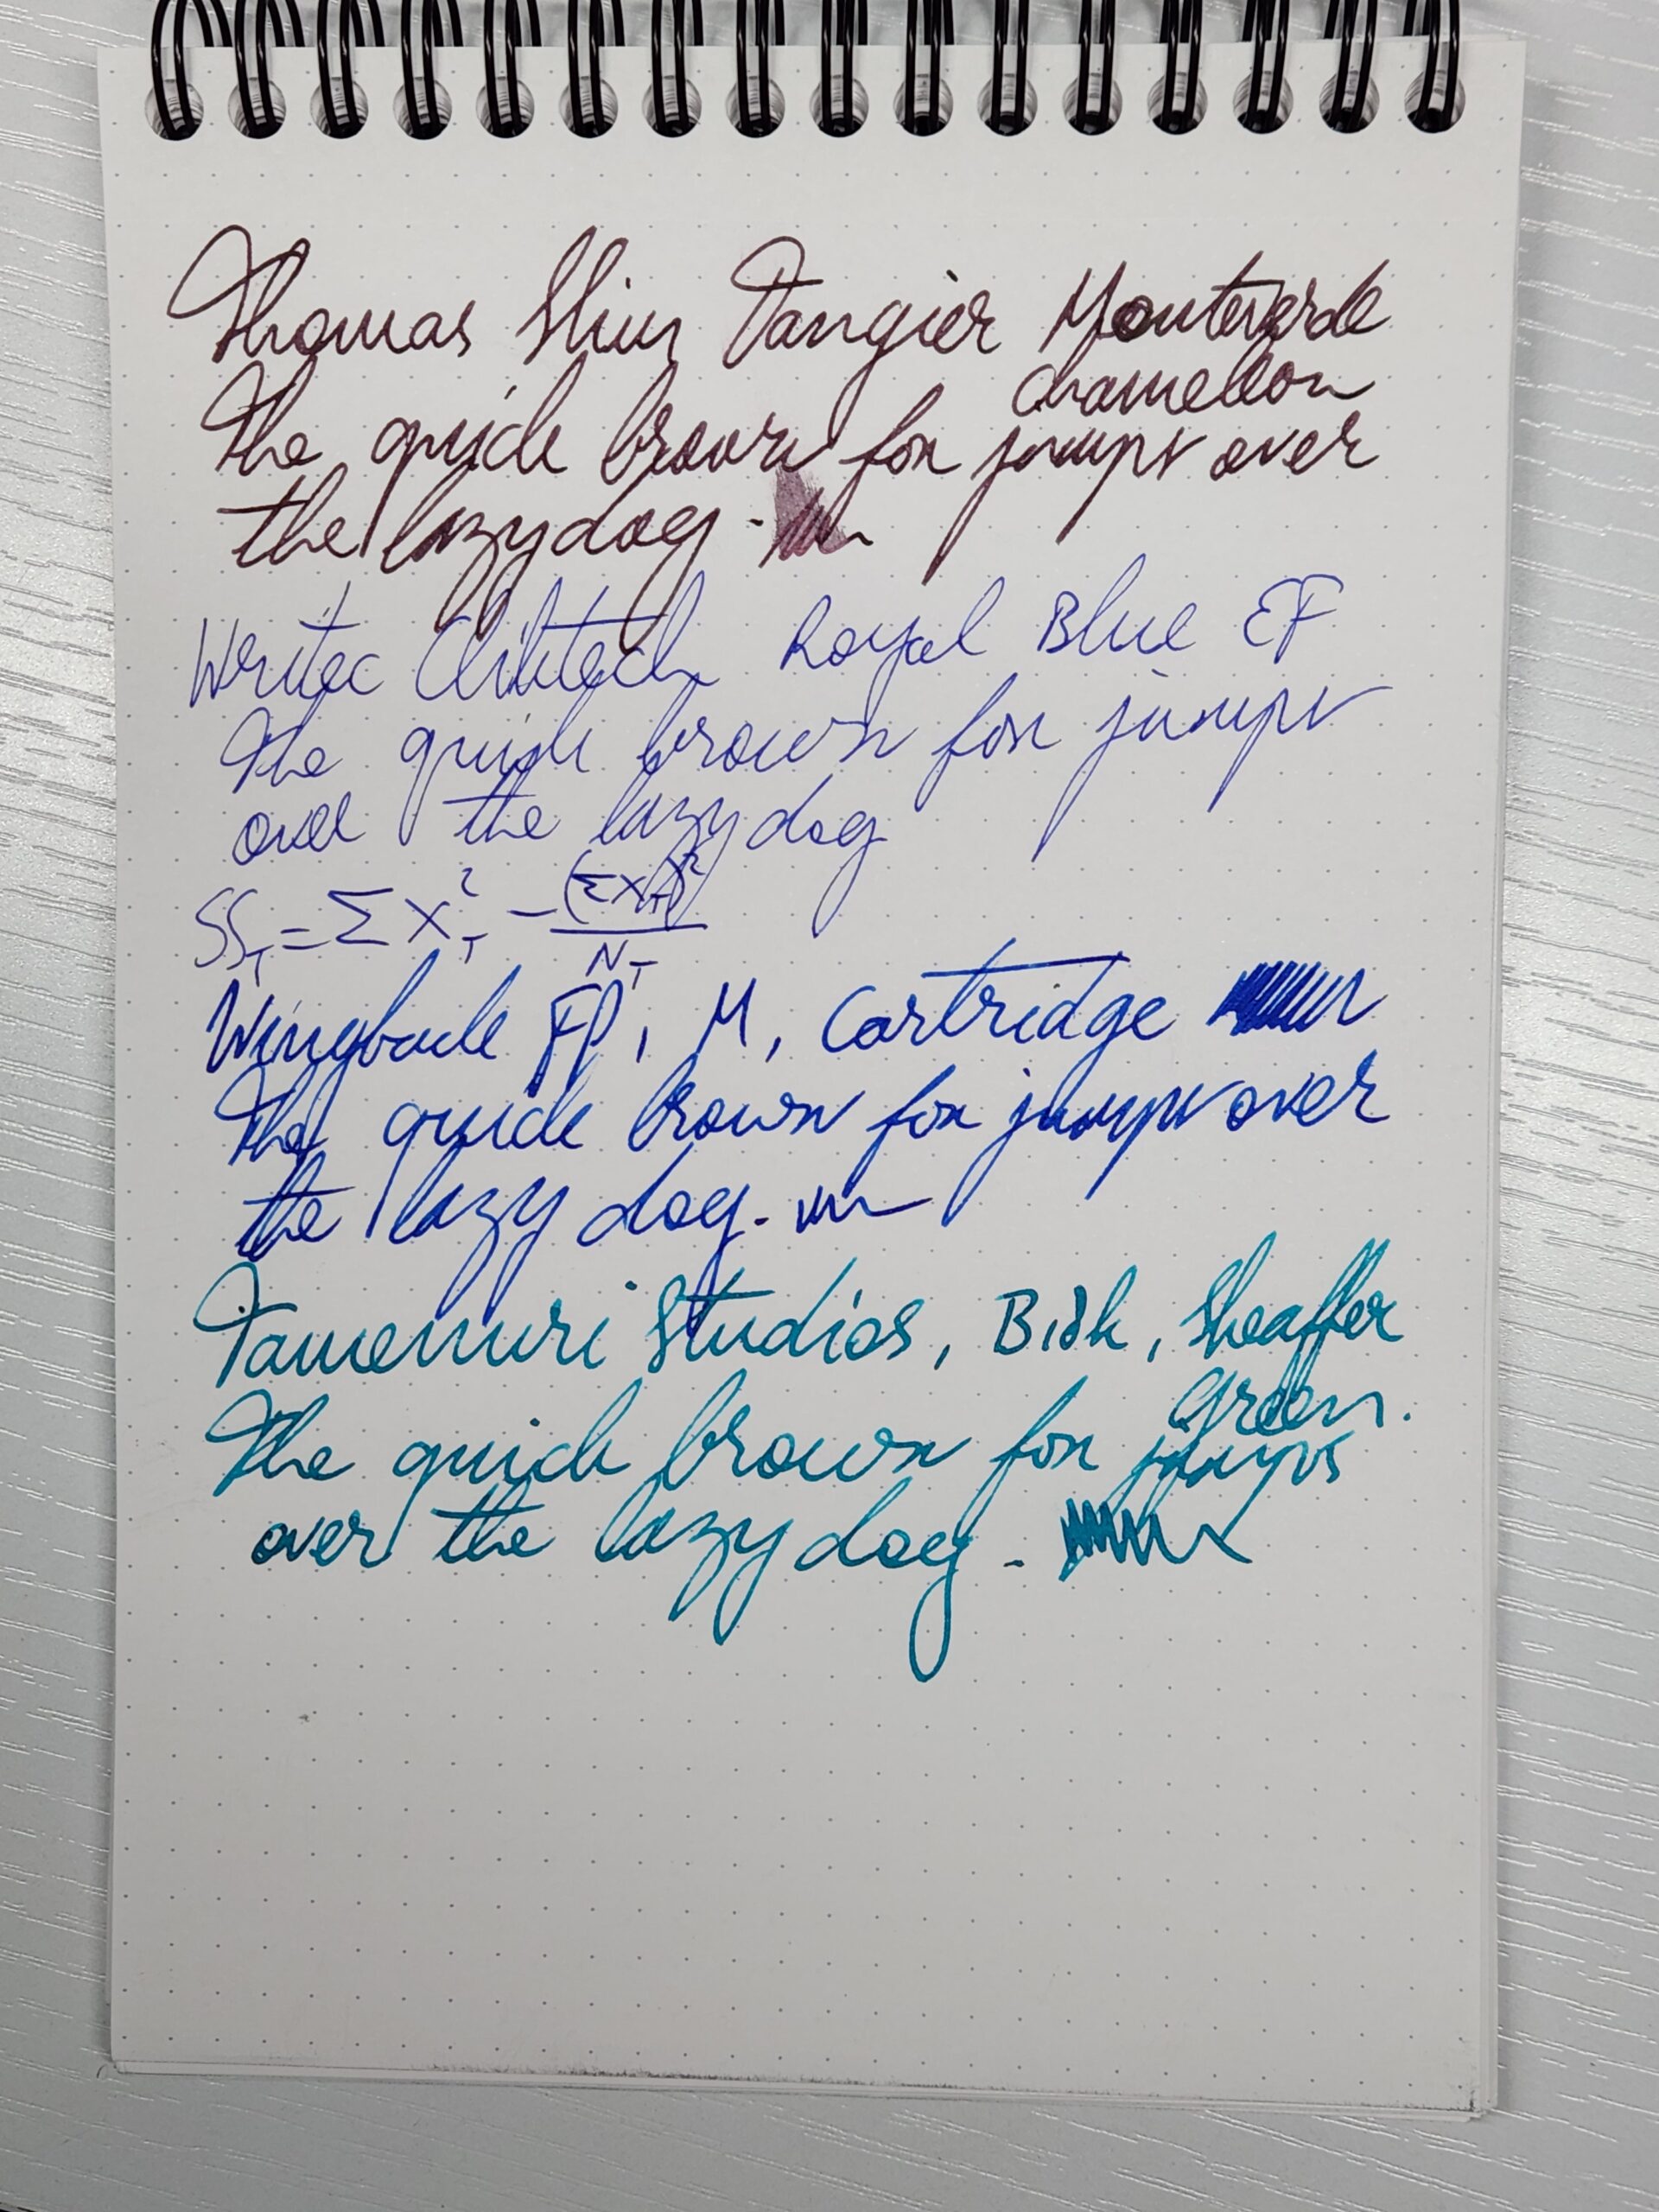 Thomas Slim Tangier Monteverde
Chameleon
The quick brown fox jumps over
the lazy dog.
Writec Cliktech Royal Blue EF
The quick brown fox jumps
over the lazy dog
SS_T = Σ X_T² - (Σ X_T)² / N_T
Wingback FP, M, Cartridge
The quick brown fox jumps over
the lazy dog.
Tamenuri Studios, Sheaffer
Green.
The quick brown fox jumps
over the lazy dog.